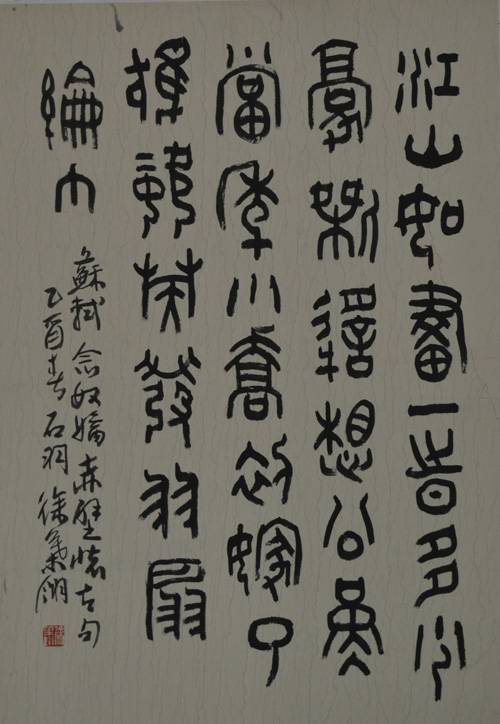 江山如畫一時多少
豪傑遥想公瑾
當年小喬初嫁了
雄姿英發羽扇
綸巾
蘇軾念奴嬌赤壁懷古句
乙酉春石羽徐